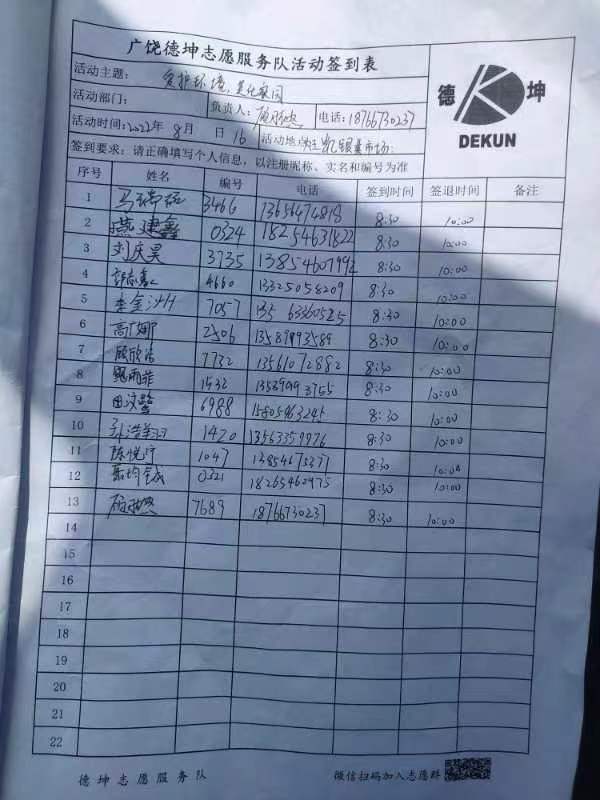 广饶德坤志愿服务队活动签到表
德 坤
DEKUN
活动主题: 爱护环境,美化家园
活动部门: 负责人: 电话: 18766730237
活动时间: 2022年 8月 日 16 活动地点: 银座市场
签到要求: 请正确填写个人信息,以注册昵称、实名和编号为准
序号 姓名 编号 电话 签到时间 签退时间 备注
1 3466 13656474818 8:30 10:00
2 燕建鑫 0324 18254631822 8:30 10:00
3 刘庆昊 3735 13854607992 8:30 10:00
4 4660 13325058209 8:30 10:00
5 李金洲 7057 135 63360525 8:30 10:00
6 高广娜 2506 13589993589 8:30 10:00
7 顾欣洁 7732 13561072882 8:30 10:00
8 魏雨菲 1532 8:30 10:00
9 6988 15805463245 8:30 10:00
10 1420 13563359976 8:30 10:00
11 陈悦宁 1047 13854673377 8:30 10:00
12 0321 18265460975 8:30 10:00
13 7689 18766730237 8:30 10:00
14
15
16
17
18
19
20
21
22
德坤志愿服务队 微信扫码加入志愿群